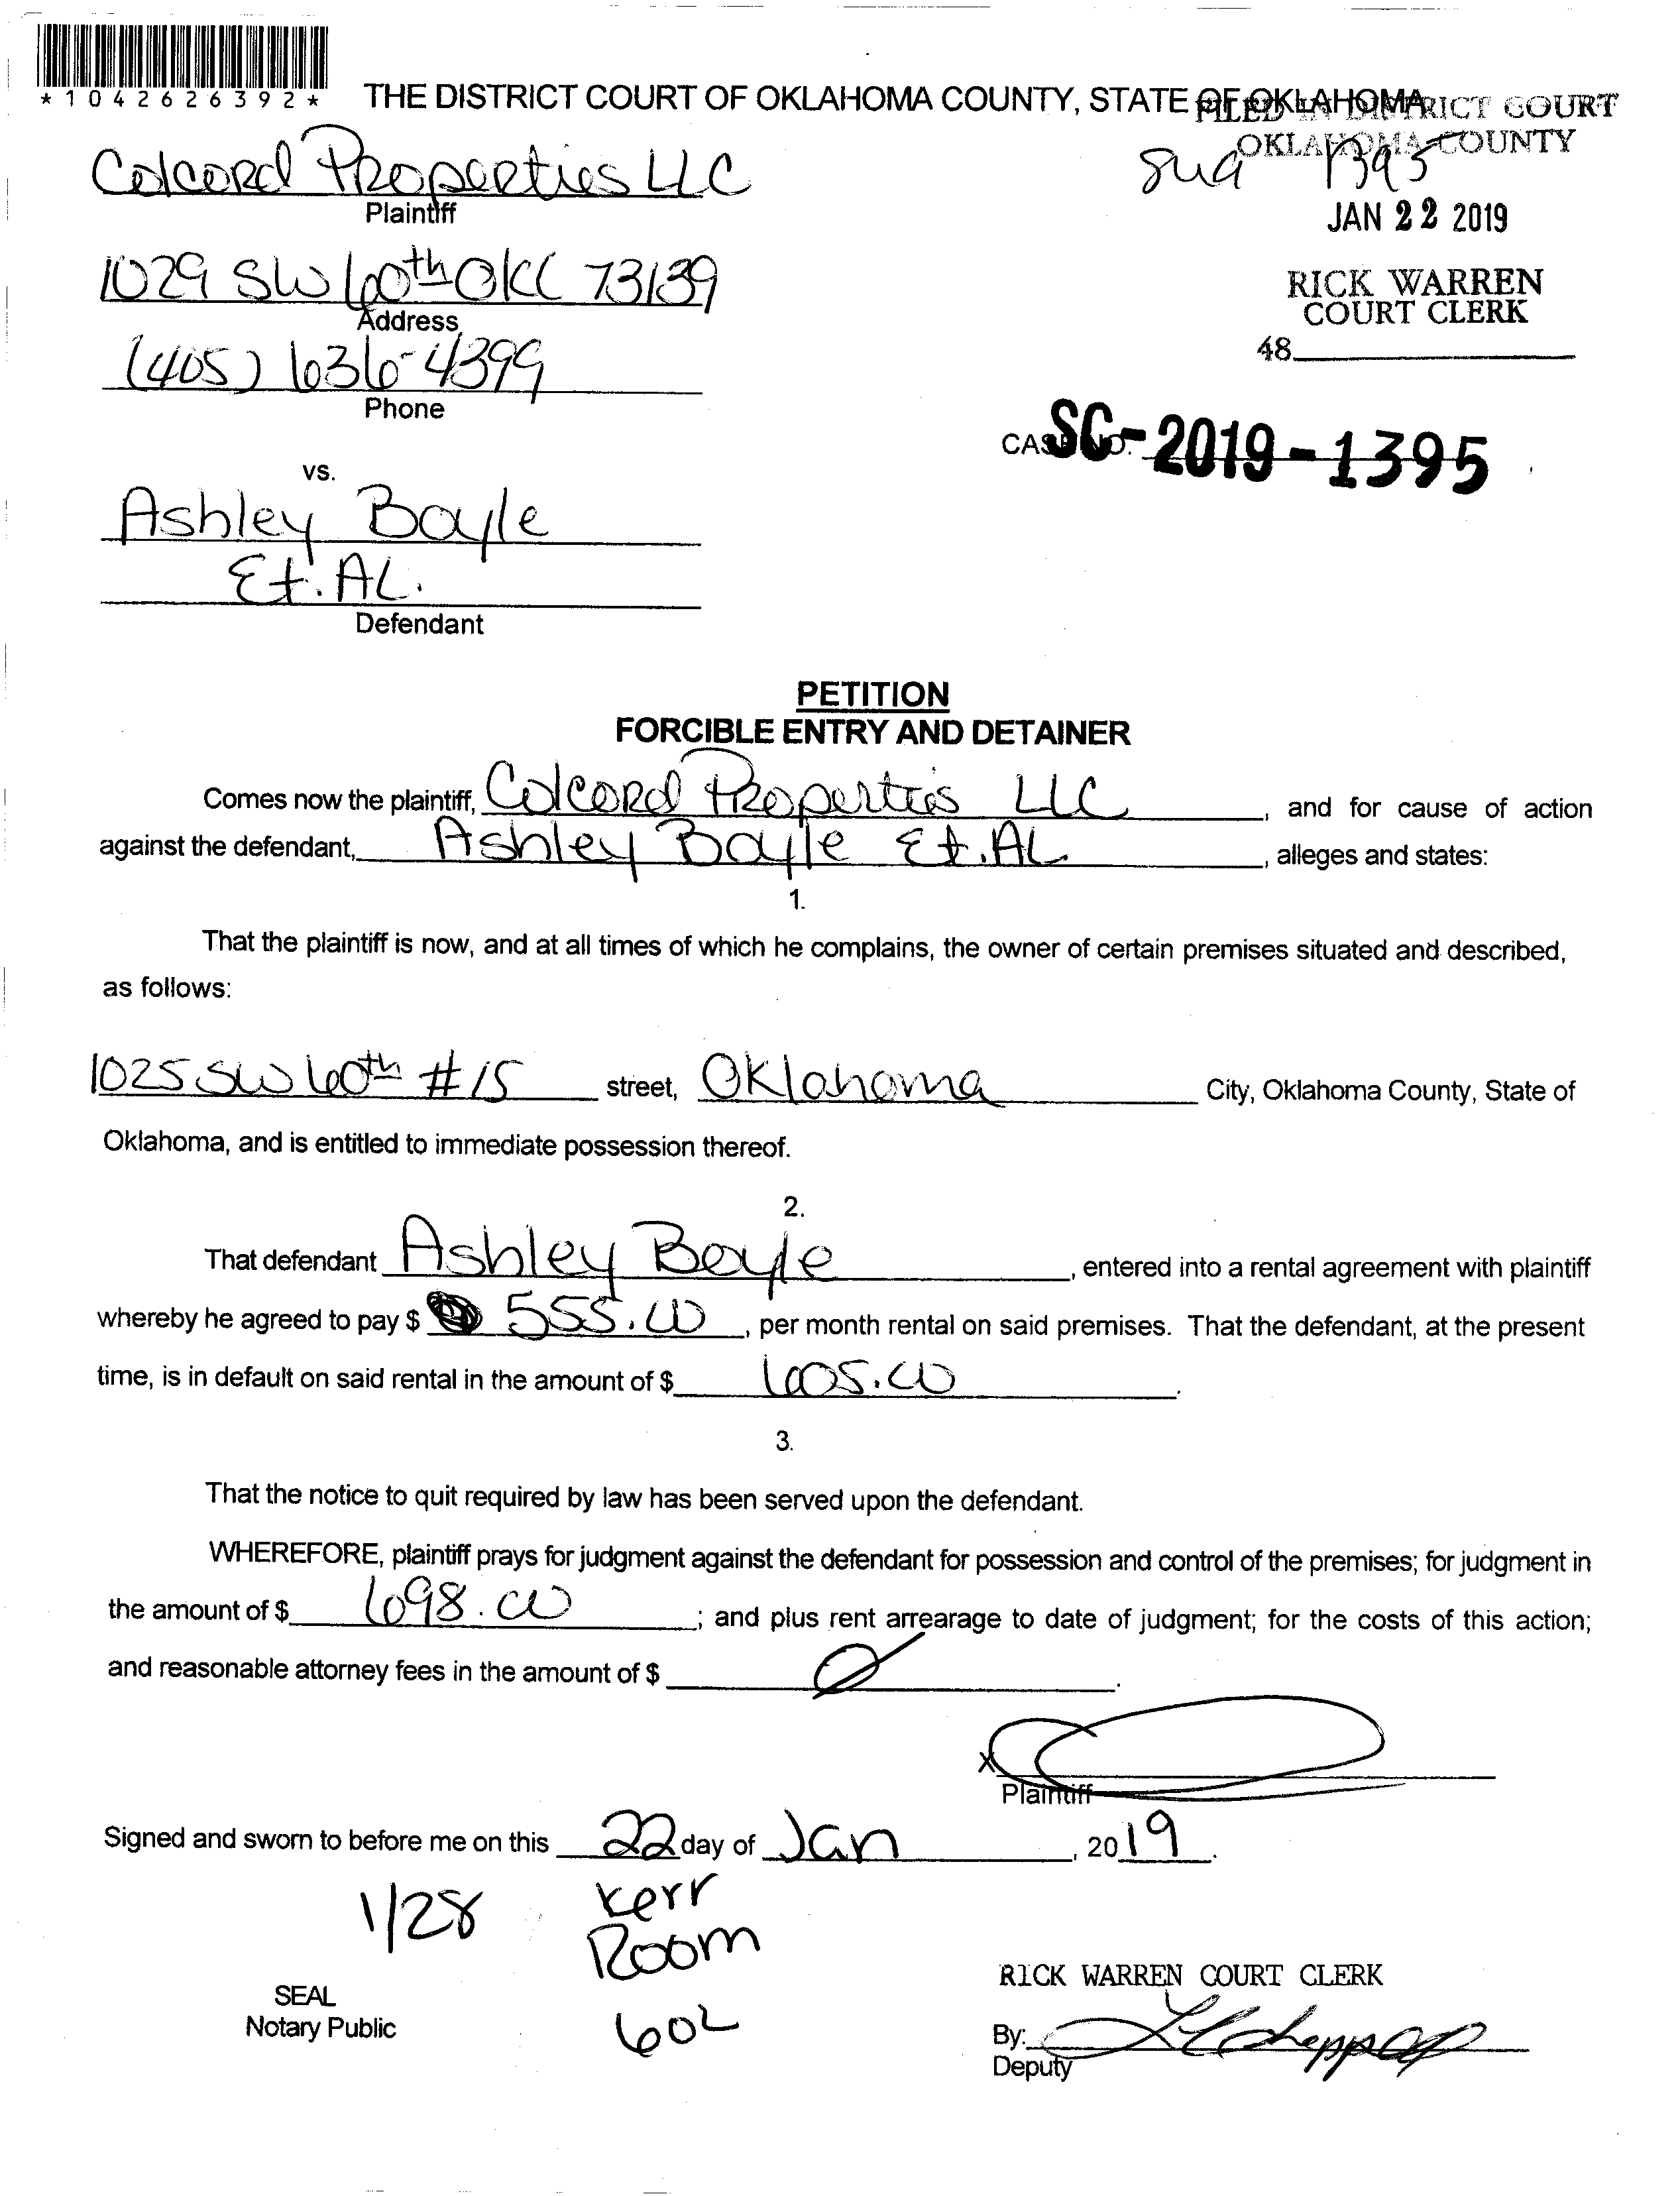 *1042626392*
THE DISTRICT COURT OF OKLAHOMA COUNTY, STATE OF OKLAHOMA
FILED IN DISTRICT COURT
OKLAHOMA COUNTY
Colcord Properties LLC
1395
Plaintiff
JAN 22 2019
1029 SW 60th OKC 73139
RICK WARREN
COURT CLERK
Address
(405) 636-4399
48
Phone
CASE NO. SC-2019-1395
vs.
Ashley Boyle
Et. AL.
Defendant
PETITION
FORCIBLE ENTRY AND DETAINER
Comes now the plaintiff, Colcord Properties LLC, and for cause of action
against the defendant, Ashley Boyle Et. AL, alleges and states:
1.
That the plaintiff is now, and at all times of which he complains, the owner of certain premises situated and described,
as follows:
1025 SW 60th #15 street, Oklahoma City, Oklahoma County, State of
Oklahoma, and is entitled to immediate possession thereof.
2.
That defendant Ashley Boyle, entered into a rental agreement with plaintiff
whereby he agreed to pay $ 555.00, per month rental on said premises. That the defendant, at the present
time, is in default on said rental in the amount of $ 605.00.
3.
That the notice to quit required by law has been served upon the defendant.
WHEREFORE, plaintiff prays for judgment against the defendant for possession and control of the premises; for judgment in
the amount of $ 698.00; and plus rent arrearage to date of judgment; for the costs of this action;
and reasonable attorney fees in the amount of $ Ø.
X
Plaintiff
Signed and sworn to before me on this 22 day of Jan, 2019.
1/28 Kerr
Room
602
SEAL
Notary Public
RICK WARREN COURT CLERK
By:
Deputy